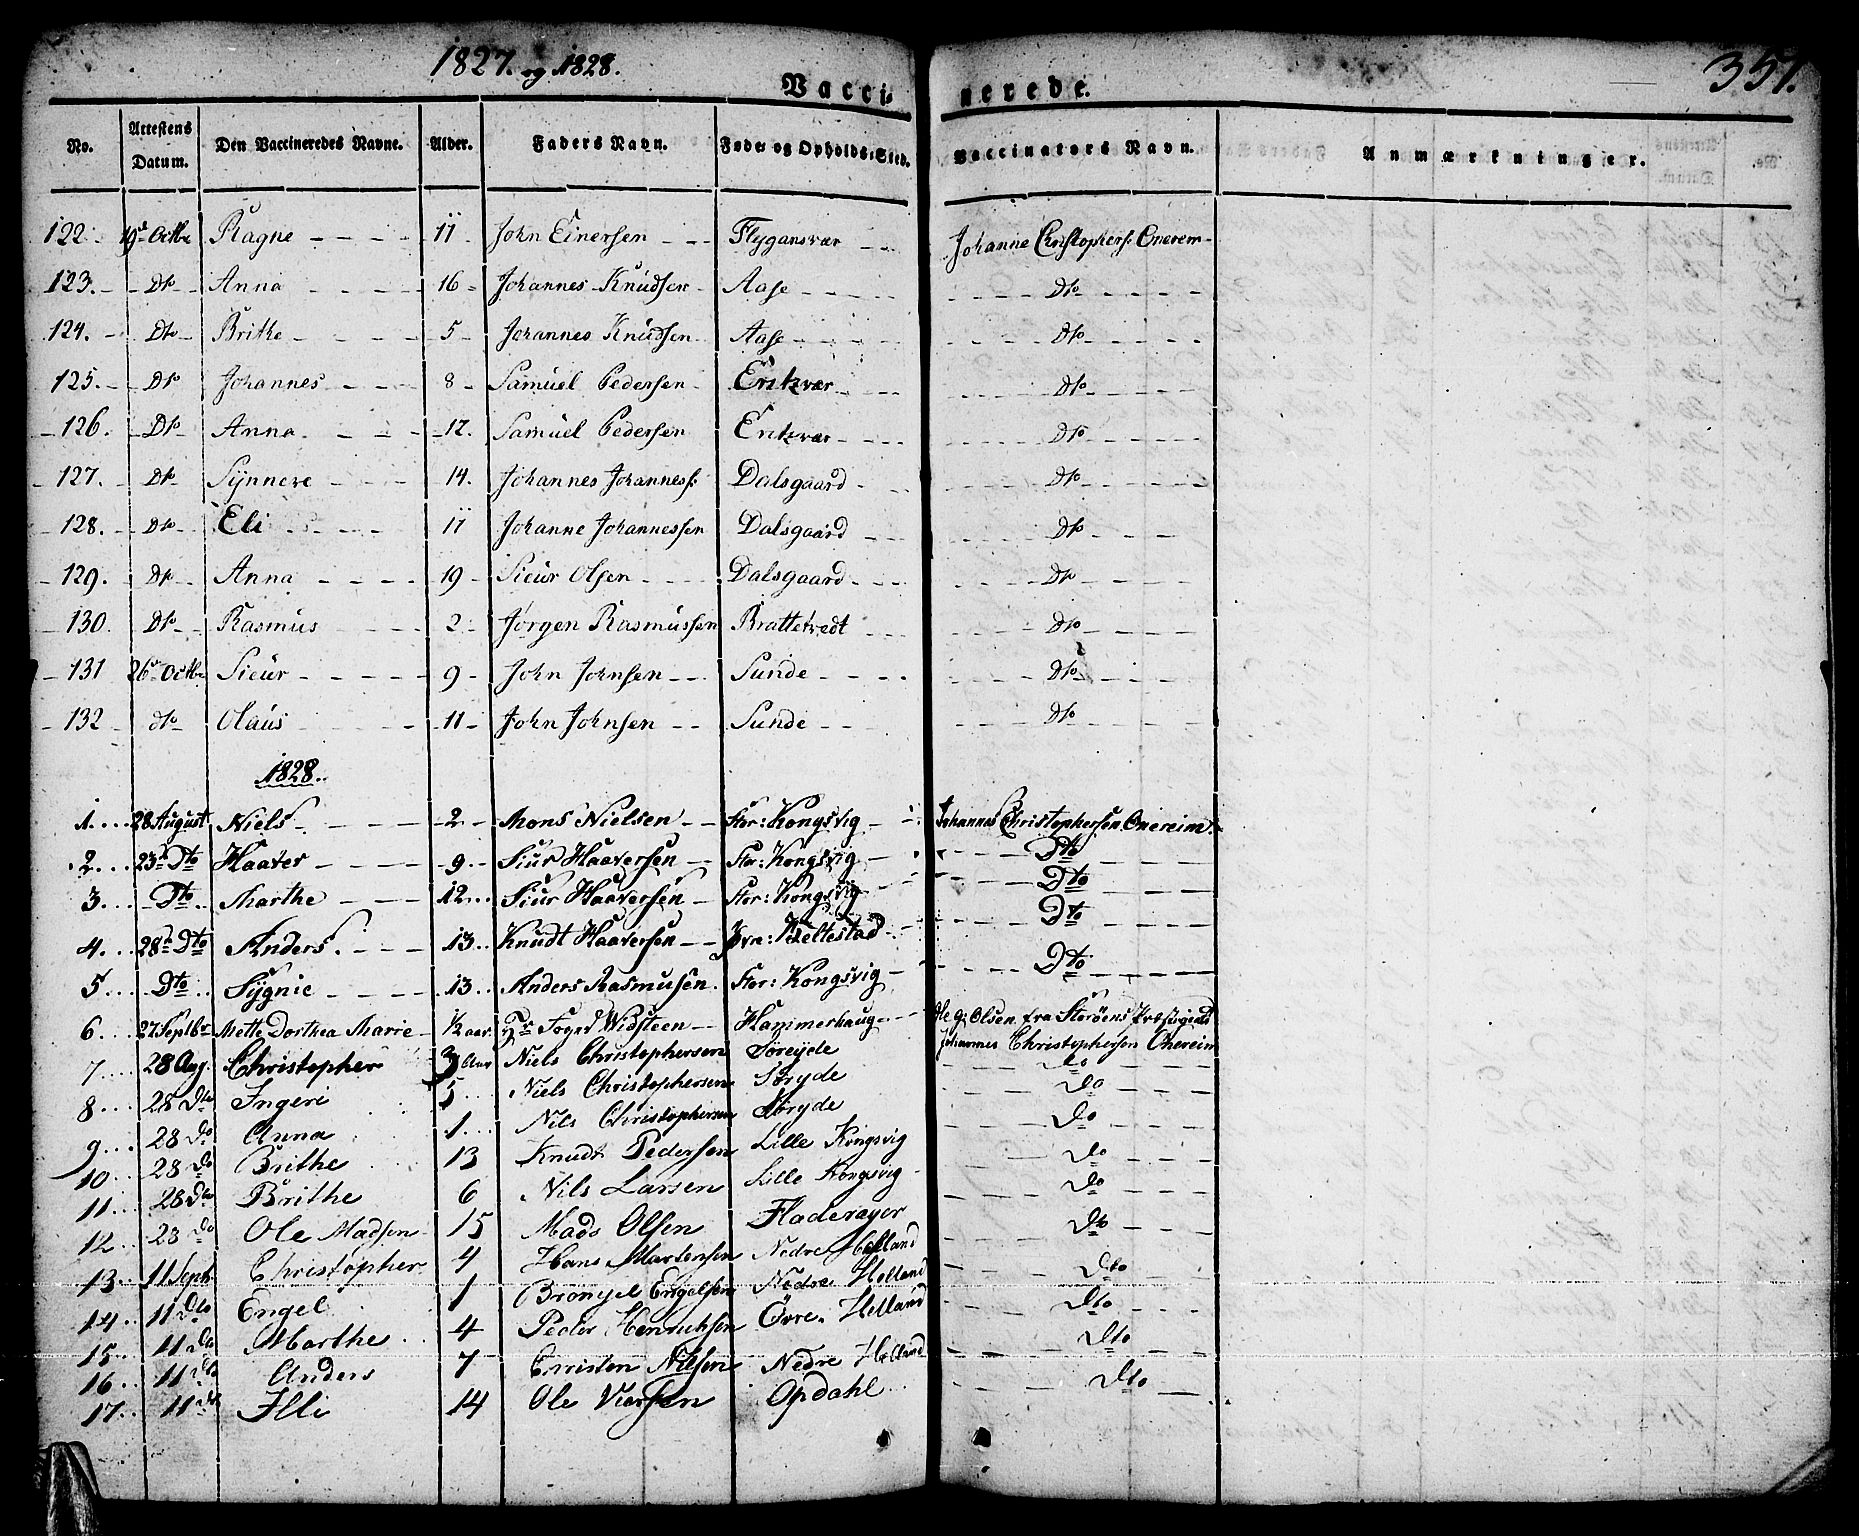 1827. og 1828.
Vaccinerede.
351.
No. Attestens Datum. Den Vaccineredes Navne. Alder. Faders Navn. Føde- og Opholds-Sted. Vaccinators Navn. Anmærkninger.
122. 19d Octbr Ragne 11 John Einersen Flygansvær Johanne Christophers: Onerem
123. Do Anna 16 Johannes Knudsen Aase Do
124. Do Brithe 5 Johannes Knudsen Aase Do
125. Do Johannes 8 Samuel Pedersen Erikvær Do
126. Do Anna 12. Samuel Pedersen Erikvær Do
127. Do Synneve 14. Johannes Johanness: Dalsgaard Do
128. Do Eli 11 Johanne Johannessen Dalsgaard Do
129. Do Anna 19 Sieur Olsen Dalsgaard Do
130. Do Rasmus 2 Jørgen Rasmussen Brattetvedt Do
131 26d Octbr Sieur 9 John Johnsen Sunde Do
132 do Olaus 11 John Johnsen Sunde Do
1828.
1. 28 August Niels 2 Mons Nielsen Stor: Kongsvig Johannes Christophersen Onereim
2. 23d Dto Haaver 9 Siur Haaversen Stor: Kongsvig Dto
3. Dto Marthe 12 Siur Haaversen Stor: Kongsvig Dto
4. 28d Dto Anders. 13 Knudt Haaversen Øvre: Teltestad Dto
5. Dto Sygnie 13 Anders Rasmusen. Stor: Kongsvig Dto
6. 27 Septbr Mette Dorthea Marie 1/2 aar Foged Widsteen Hammerhaug Olsen fra Storøens Præstegield
7. 28 Aug. Christopher 3 Aar Niels Christophersen Søreyde Johannes Christophersen Onereim
8. 28 Dto Ingeri 5 Niels Christophersen Søryde do
9. 28 Do Anna 1 Nils Christophersen Søryde Do
10. 28 Do Brithe 13 Knudt Pedersen Lille Kongsvig Do
11. 28 Dto Brithe 6 Nils Larsen Lille Kongsvig Do
12. 28 Do Ole Madsen 15 Mads Olsen Fladerager Do
13. 11 Sept. Christopher 4 Hans Martensen Nedre Helland Dto
14. 11 Dto Engel 1 Brønyel Engelsen Nedre Helland Dto
15. 11 Do Marthe 4 Peder Henriksen Øvre Helland Dto
16. 11 Do Anders 7 Christen Nilsen Nedre Helland Dto
17. 11 do Illi 14 Ole Viersen Opdahl Dto